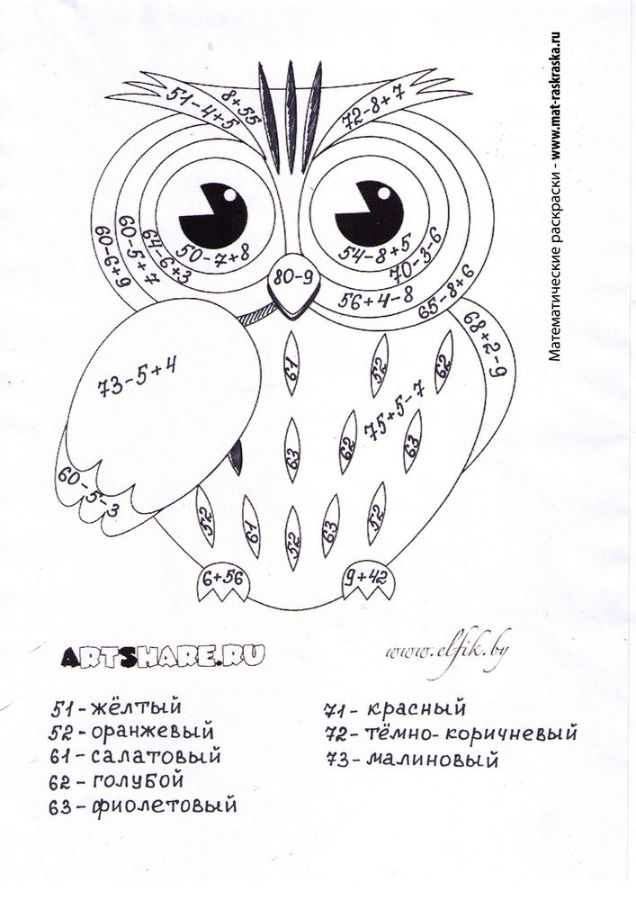 Математические раскраски - www.mat-raskraska.ru
51-4+5
8+55
72-8+7
60-6+9
60-5+7
64-6+3
50-7+8
54-8+5
70-3-6
56+4-8
65-8+6
80-9
68+2-9
73-5+4
61
52
62
75+5-7
63
62
63
60-5-3
52
61
52
63
52
6+56
9+42
ARTSHARE.RU
www.elfik.by
51-жёлтый
52-оранжевый
61-салатовый
62-голубой
63-фиолетовый
71- красный
72-тёмно-коричневый
73-малиновый